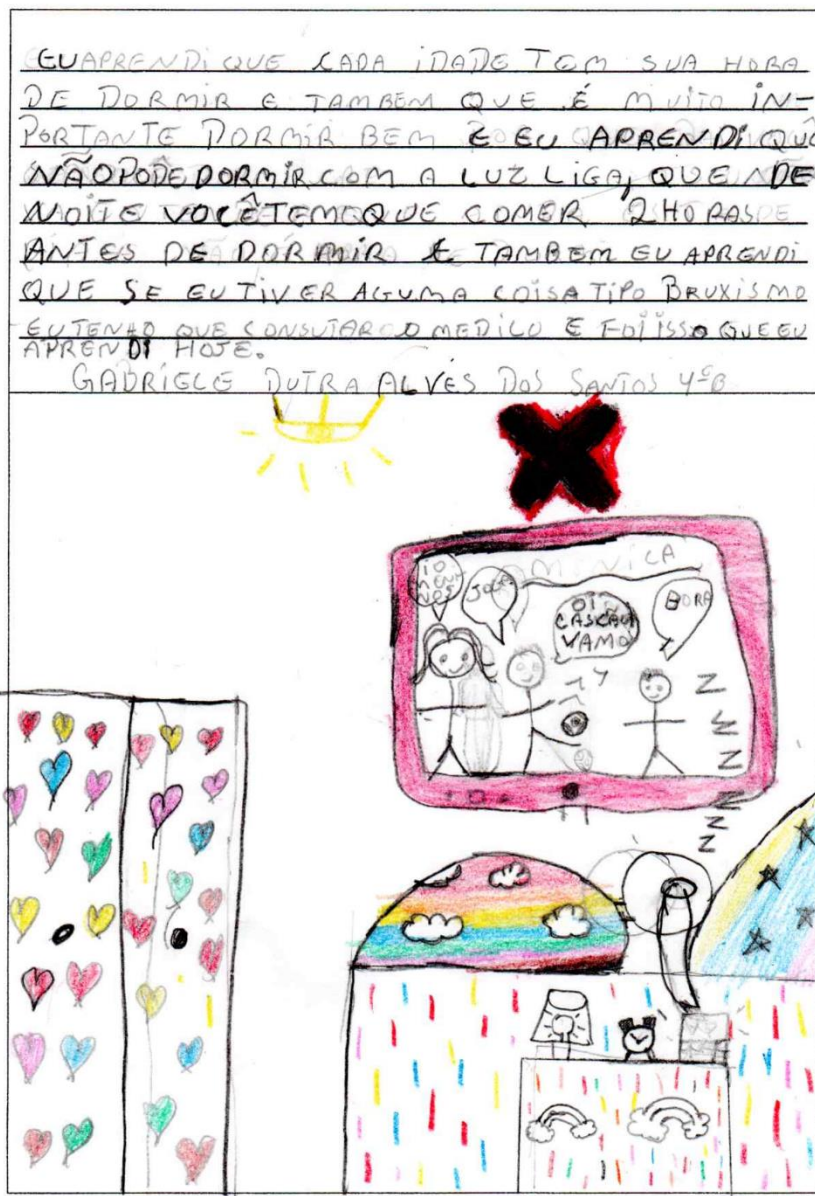 EU APRENDI QUE CADA IDADE TEM SUA HORA
DE DORMIR E TAMBEM QUE É MUITO IN-
PORTANTE DORMIR BEM E EU APRENDI QUE
NÃO PODE DORMIR COM A LUZ LIGA, QUE DE
NOITE VOCÊ TEM QUE COMER 2 HORAS
ANTES DE DORMIR E TAMBEM EU APRENDI
QUE SE EU TIVER AGUMA COISA TIPO BRUXISMO
EU TENHO QUE CONSUTAR O MEDICO E FOI ISSO QUE EU
APRENDI HOJE.
GABRIELE DUTRA ALVES DOS SANTOS 4º B
MÔNICA
OI
CASCÃO
VAMO
BORA
Z
Z
Z
Z
Z
Z